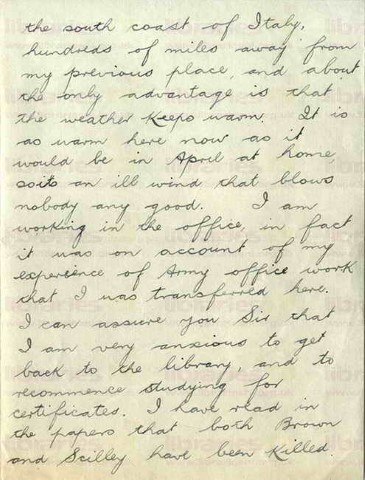 the south coast of Italy,
hundreds of miles away from
my previous place, and about
the only advantage is that
the weather keeps warm. It is
as warm here now as it
would be in April at home,
so its an ill wind that blows
nobody any good. I am
working in the office, in fact
it was on account of my
experience of Army office work
that I was transferred here.
I can assure you Sir that
I am very anxious to get
back to the library, and to
recommence studying for
certificates. I have read in
the papers that both Brown
and Scilley have been killed.